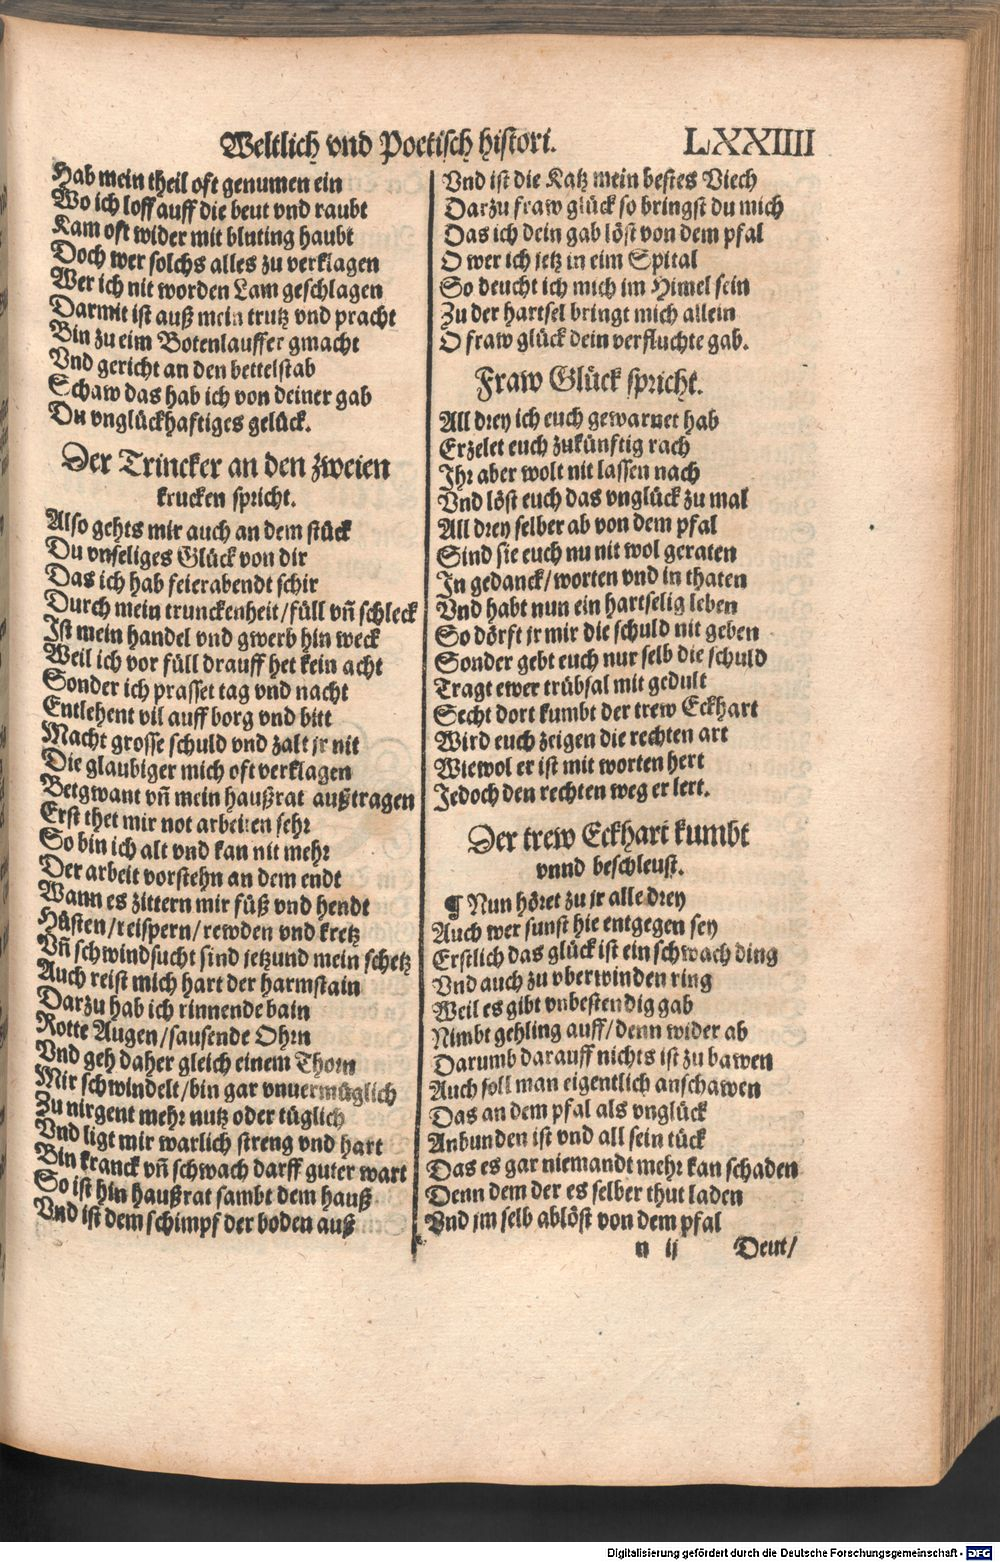 Weltlich vnd Poetisch histori. LXXIIII
Hab mein theil oft genumen ein
Wo ich loff auff die beut vnd raubt
Kam oft wider mit bluting haubt
Doch wer solchs alles zu verklagen
Wer ich nit worden Lam geschlagen
Darmit ist auß mein trutz vnd pracht
Bin zu eim Botenlauffer gmacht
Vnd gericht an den bettelstab
Schaw das hab ich von deiner gab
Du vnglückhaftiges gelück.
Der Trincker an den zweien
krucken spricht.
Also gehts mir auch an dem stück
Du vnseliges Glück von dir
Das ich hab feierabendt schir
Durch mein trunckenheit/füll vn̄ schleck
Ist mein handel vnd gwerb hin weck
Weil ich vor füll drauff het kein acht
Sonder ich prasset tag vnd nacht
Entlehent vil auff borg vnd bitt
Macht grosse schuld vnd zalt jr nit
Die glaubiger mich oft verklagen
Betgwant vn̄ mein haußrat außtragen
Erst thet mir not arbeiten sehr
So bin ich alt vnd kan nit mehr
Der arbeit vorstehn an dem endt
Wann es zittern mir füß vnd hendt
Hůsten/reispern/rewden vnd kretz
Vn̄ schwindsucht sind jetzund mein schetz
Auch reist mich hart der harmstain
Darzu hab ich rinnende bain
Rotte Augen/sausende Ohrn
Vnd geh daher gleich einem Thorn
Mir schwindelt/bin gar vnuermüglich
Zu nirgent mehr nutz oder tüglich
Vnd ligt mir warlich streng vnd hart
Bin kranck vn̄ schwach darff guter wart
So ist hin haußrat sambt dem hauß
Vnd ist dem schimpf der boden auß
Vnd ist die Katz mein bestes Viech
Darzu fraw glück so bringst du mich
Das ich dein gab löst von dem pfal
O wer ich jetz in eim Spital
So deucht ich mich im Himel sein
Zu der hartsel bringt mich allein
O fraw glück dein verfluchte gab.
Fraw Glück spricht.
All drey ich euch gewarnet hab
Erzelet euch zukünftig rach
Ihr aber wolt nit lassen nach
Vnd löst euch das vnglück zu mal
All drey selber ab von dem pfal
Sind sie euch nu nit wol geraten
In gedanck/worten vnd in thaten
Vnd habt nun ein hartselig leben
So dörft jr mir die schuld nit geben
Sonder gebt euch nur selb die schuld
Tragt ewer trübsal mit gedult
Secht dort kumbt der trew Eckhart
Wird euch zeigen die rechten art
Wiewol er ist mit worten hert
Jedoch den rechten weg er lert.
Der trew Eckhart kumbt
vnnd beschleust.
¶ Nun höret zu jr alle drey
Auch wer sunst hie entgegen sey
Erstlich das glück ist ein schwach ding
Vnd auch zu vberwinden ring
Weil es gibt vnbestendig gab
Nimbt gehling auff/denn wider ab
Darumb darauff nichts ist zu bawen
Auch soll man eigentlich anschawen
Das an dem pfal als vnglück
Anbunden ist vnd all sein tück
Das es gar niemandt mehr kan schaden
Denn dem der es selber thut laden
Vnd jm selb ablöst von dem pfal
n ij Deut/
Digitalisierung gefördert durch die Deutsche Forschungsgemeinschaft - DFG